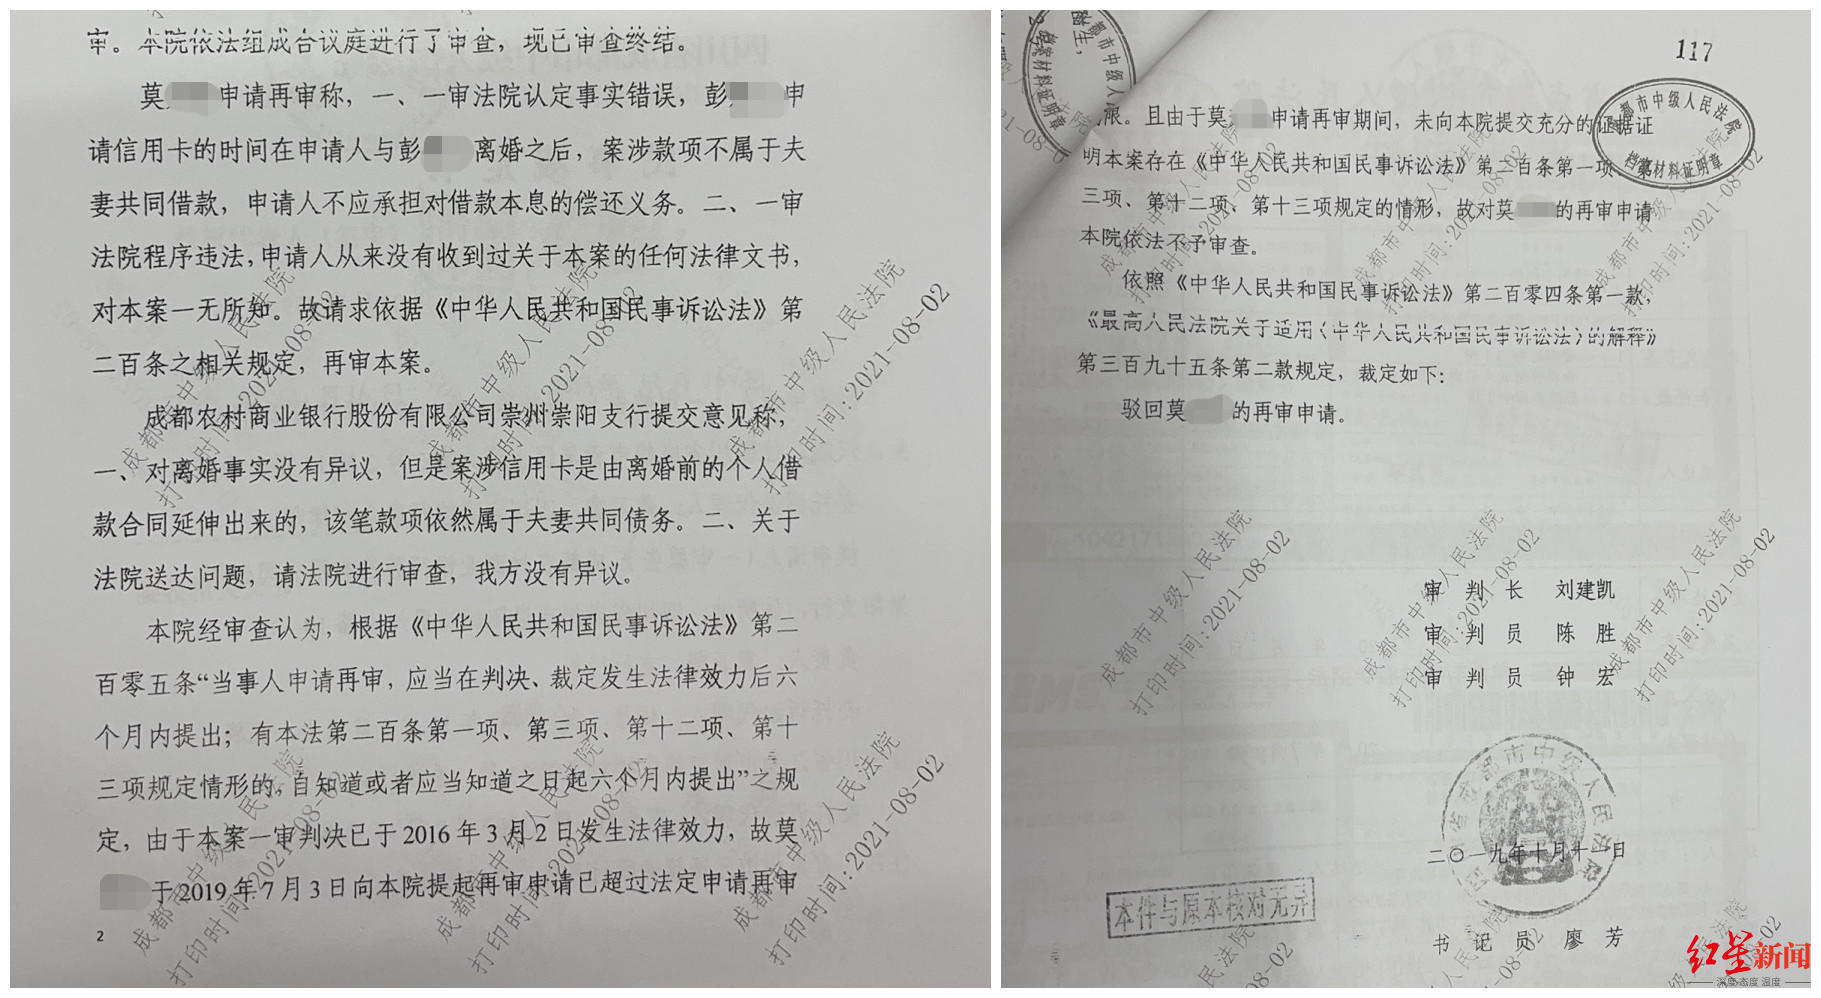 审。本院依法组成合议庭进行了审查，现已审查终结。
莫 申请再审称，一、一审法院认定事实错误，彭 申
请信用卡的时间在申请人与彭 离婚之后，案涉款项不属于夫
妻共同借款，申请人不应承担对借款本息的偿还义务。二、一审
法院程序违法，申请人从来没有收到过关于本案的任何法律文书，
对本案一无所知。故请求依据《中华人民共和国民事诉讼法》第
二百条之相关规定，再审本案。
成都农村商业银行股份有限公司崇州崇阳支行提交意见称，
一、对离婚事实没有异议，但是案涉信用卡是由离婚前的个人借
款合同延伸出来的，该笔款项依然属于夫妻共同债务。二、关于
法院送达问题，请法院进行审查，我方没有异议。
本院经审查认为，根据《中华人民共和国民事诉讼法》第二
百零五条“当事人申请再审，应当在判决、裁定发生法律效力后六
个月内提出；有本法第二百条第一项、第三项、第十二项、第十
三项规定情形的，自知道或者应当知道之日起六个月内提出”之规
定，由于本案一审判决已于2016年3月2日发生法律效力，故莫
于2019年7月3日向本院提起再审申请已超过法定申请再审
2
成都市中级人民法院
打印时间：2021-08-02
117
成都市中级人民法院
档案材料证明章
限。且由于莫 申请再审期间，未向本院提交充分的证据证
明本案存在《中华人民共和国民事诉讼法》第二百条第一项、第
三项、第十二项、第十三项规定的情形，故对莫 的再审申请
本院依法不予审查。
依照《中华人民共和国民事诉讼法》第二百零四条第一款，
《最高人民法院关于适用〈中华人民共和国民事诉讼法〉的解释》
第三百九十五条第二款规定，裁定如下：
驳回莫 的再审申请。
审 判 长 刘建凯
审 判 员 陈 胜
审 判 员 钟 宏
二〇一九年十月十一日
本件与原本核对无异
书 记 员 廖 芳
成都市中级人民法院
打印时间：2021-08-02
红星新闻
深度 态度 温度